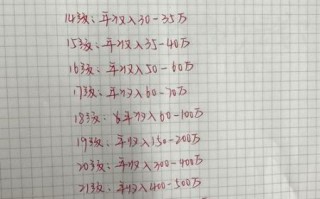 14级：年收入30-35万
15级：年收入35-40万
16级：年收入50-60万
17级：年收入60-70万
18级：年收入60-100万
19级：年收入150-200万
20级：年收入300-400万
21级：年收入400-500万